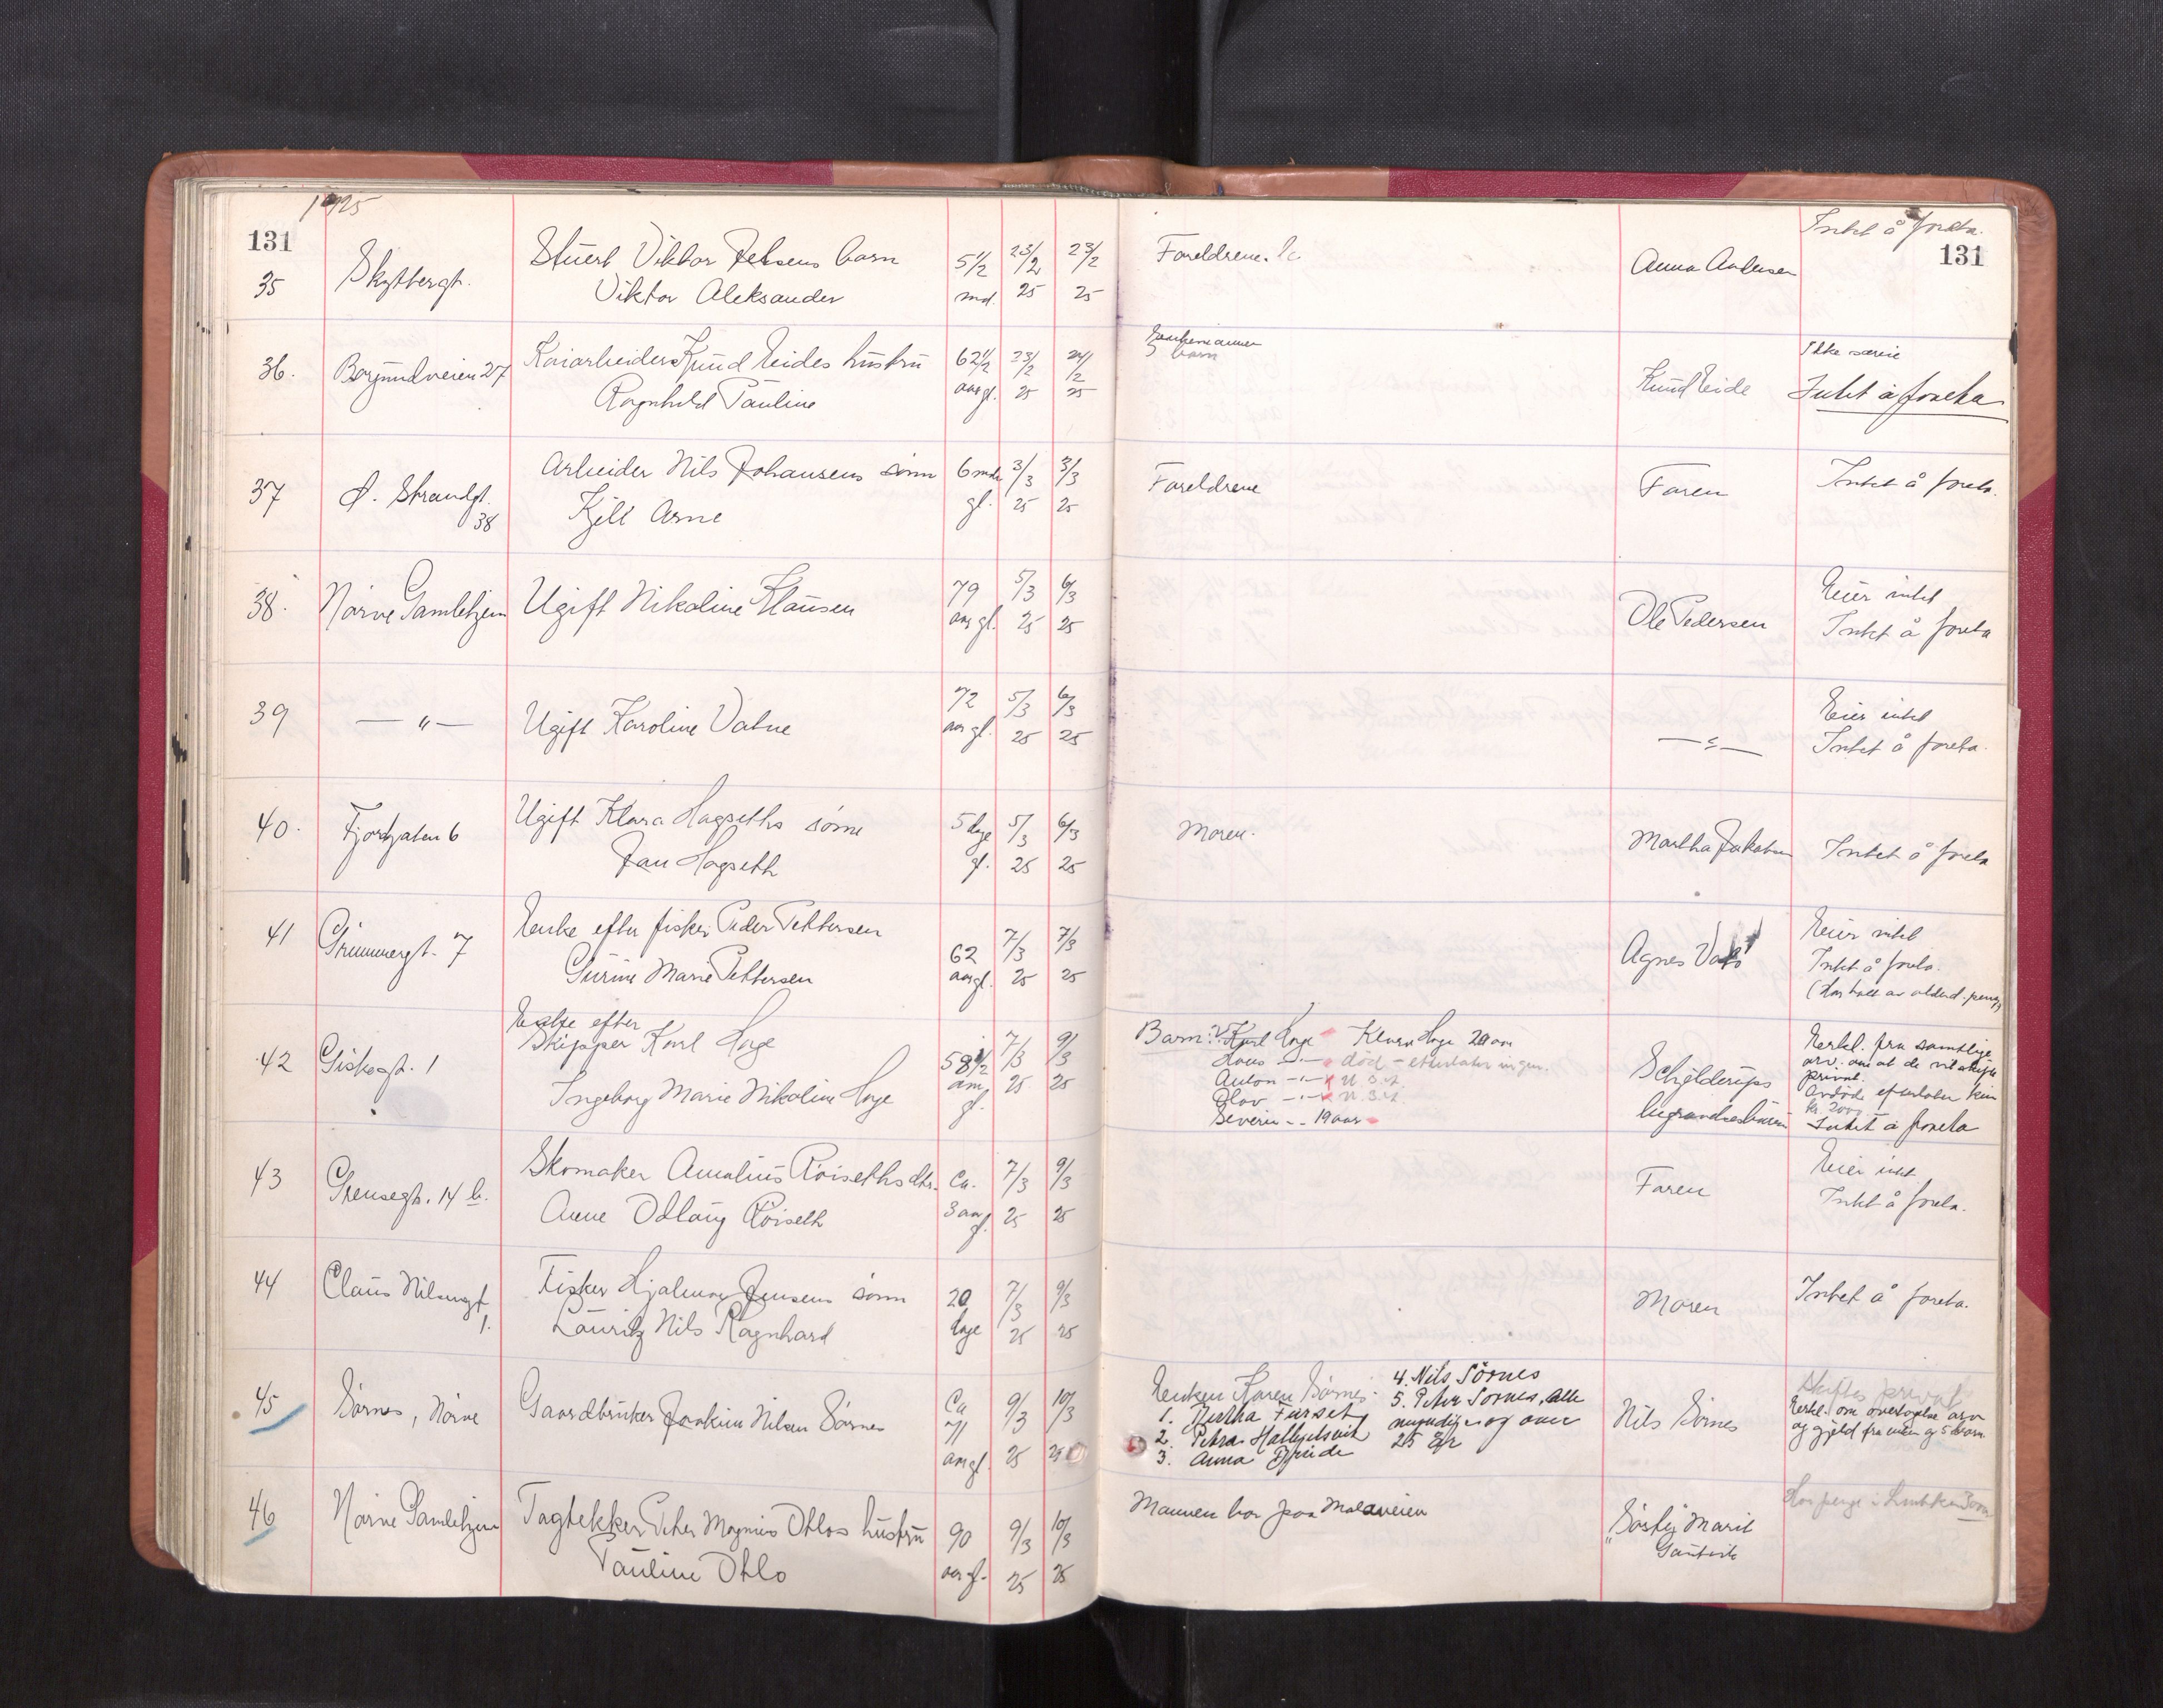 1925
131
35
Skytbergt.
Stuert Viktor Jensens barn
Viktor Aleksander
5½ md.
23/2 25
23/2 25
Foreldrene.
Anna Andersen
Intet å foreta.
131
36.
Borgundveien 27
Kaiarbeider Knud Eides hustru
Ragnhild Pauline
62½ aar gl.
23/2 25
24/2 25
Enkemannen
5 barn
Knud Eide
Ikke særeie
Intet å foreta
37
Ø. Strandgt. 38
Arbeider Nils Johansens sønn
Kjell Arne
6 mdr gl.
3/3 25
3/3 25
Foreldrene
Faren
Intet å foreta.
38.
Nørve Gamlehjem
Ugift Nikoline Klausen
79 aar gl.
5/3 25
6/3 25
Ole Pedersen
Eier intet
Intet å foreta
39
— " —
Ugift Karoline Vatne
72 aar gl.
5/3 25
6/3 25
— " —
Eier intet
Intet å foreta.
40.
Fjordgaten 6
Ugift Klara Hagseths sønn
Jan Hagseth
5 dage gl.
5/3 25
6/3 25
Moren.
Martha Jakobsen
Intet å foreta
41
Grimmergt. 7
Enke efter fisker Peder Pettersen
Gurine Marie Pettersen
62 aar gl.
7/3 25
7/3 25
Agnes
Eier intet
Intet å foreta.
(Har hatt av alderd. penge)
42
Giskegt. 1
Enke efter
Skipper Karl Hage
Ingeborg Marie Nikoline Hage
58½ aar gl.
7/3 25
9/3 25
Barn: Karl Hage Klara Hage 20 aar
— " — død – efterlater ingen.
Anton — " —
Olav — " —
Severin - - 19 aar
Schjelderups
begravelsesbureau
Erkl. fra samtlige
arv. om at de vil skifte
privat.
Avdøde efterlater kun
kr. 200
Intet å foreta
43
Grensegt. 14 b.
Skomaker Amalius Röiseths dtr.
Anne Odlaug Röiseth
Ca. 3 aar gl.
7/3 25
9/3 25
Faren
Eier intet
Intet å foreta.
44
Claus Nilsengt. 1.
Fisker Hjalmar Jensens sønn
Lauritz Nils Ragnhard
20 dage
7/3 25
9/3 25
Moren
Intet å foreta.
45
Sørnes, Nørve
Gaardbruker Joakim Nilsen Sørnes
Ca 71 aar gl.
9/3 25
10/3 25
Enken Karen Sørnes. 4. Nils Sörnes
1. Bertha Furset 5. Peter Sornes, alle
2. Petra myndige og over
3. Anna 25 år
Nils Sørnes
Skiftes privat
Erkl. om overtagelse arv
og gjeld fra enken og 5 barn.
46
Nørve Gamlehjem
Tagtekker Peter Magnus Othos hustru
Pauline Otho
90 aar gl.
9/3 25
10/3 25
Mannen bor paa
Søster Marit
Har penge i